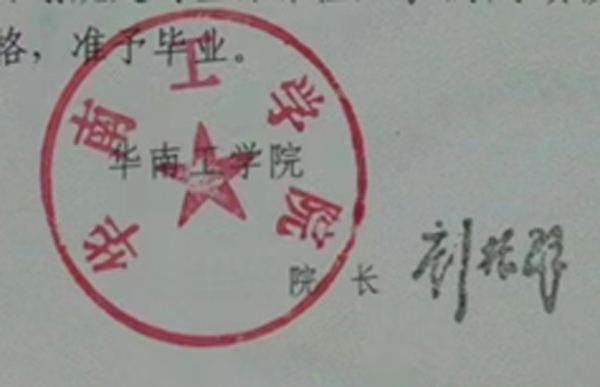 格，准予毕业。
华南工学院
华南工学院
院 长 刘振群